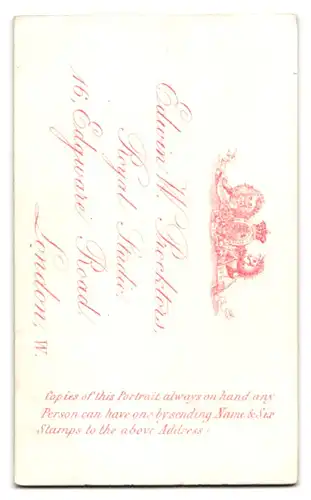 Edwin W. Procktors,
Royal Studio.
16, Edgware Road.
London, W.
Copies of this Portrait always on hand any
Person can have one by sending Name & Six
Stamps to the above Address.